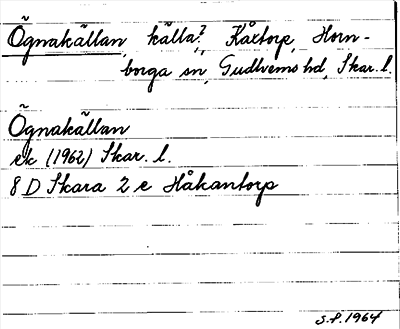 Ögnakällan, källa?, Kåxtorp, Horn-
borga sn, Gudhems hd, Skar. l.
Ögnakällan
ek (1962) Skar. l.
8 D Skara 2 e Håkantorp
S.F. 1964